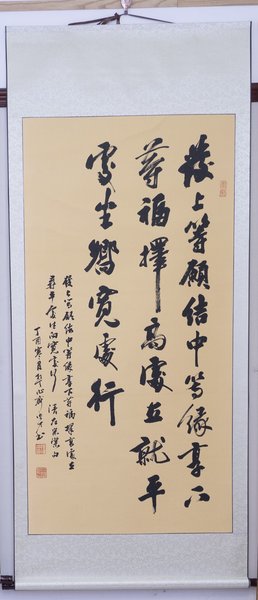 發上等願结中等緣享下
等福擇高處立就平
處坐嚮寬處行
發上等願结中等緣享下等福擇高處立
就平處坐向寬處行 清左宗棠句
丁酉寒月於心齋